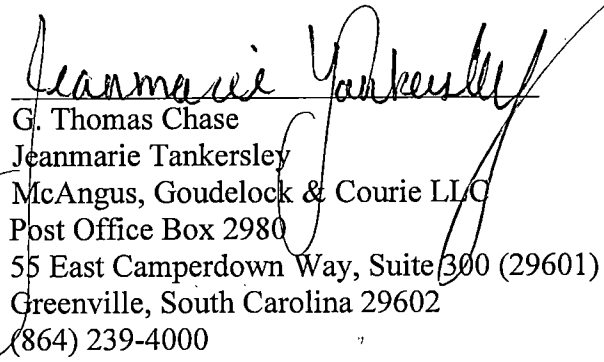 Jeanmarie Tankersley
G. Thomas Chase
Jeanmarie Tankersley
McAngus, Goudelock & Courie LLC
Post Office Box 2980
55 East Camperdown Way, Suite 300 (29601)
Greenville, South Carolina 29602
(864) 239-4000